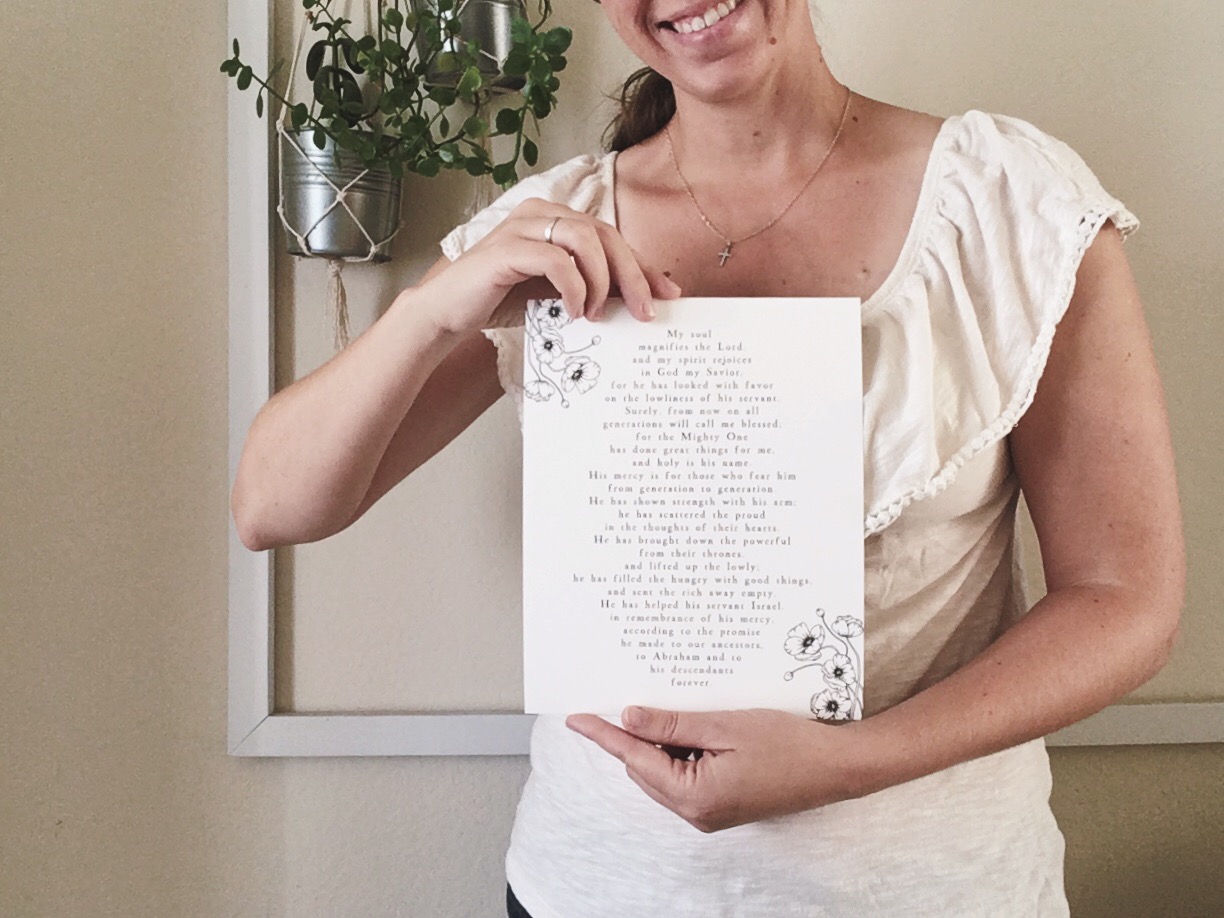 My soul
magnifies the Lord,
and my spirit rejoices
in God my Savior,
for he has looked with favor
on the lowliness of his servant.
Surely, from now on all
generations will call me blessed;
for the Mighty One
has done great things for me,
and holy is his name.
His mercy is for those who fear him
from generation to generation.
He has shown strength with his arm;
he has scattered the proud
in the thoughts of their hearts.
He has brought down the powerful
from their thrones,
and lifted up the lowly;
he has filled the hungry with good things,
and sent the rich away empty.
He has helped his servant Israel,
in remembrance of his mercy,
according to the promise
he made to our ancestors,
to Abraham and to
his descendants
forever.